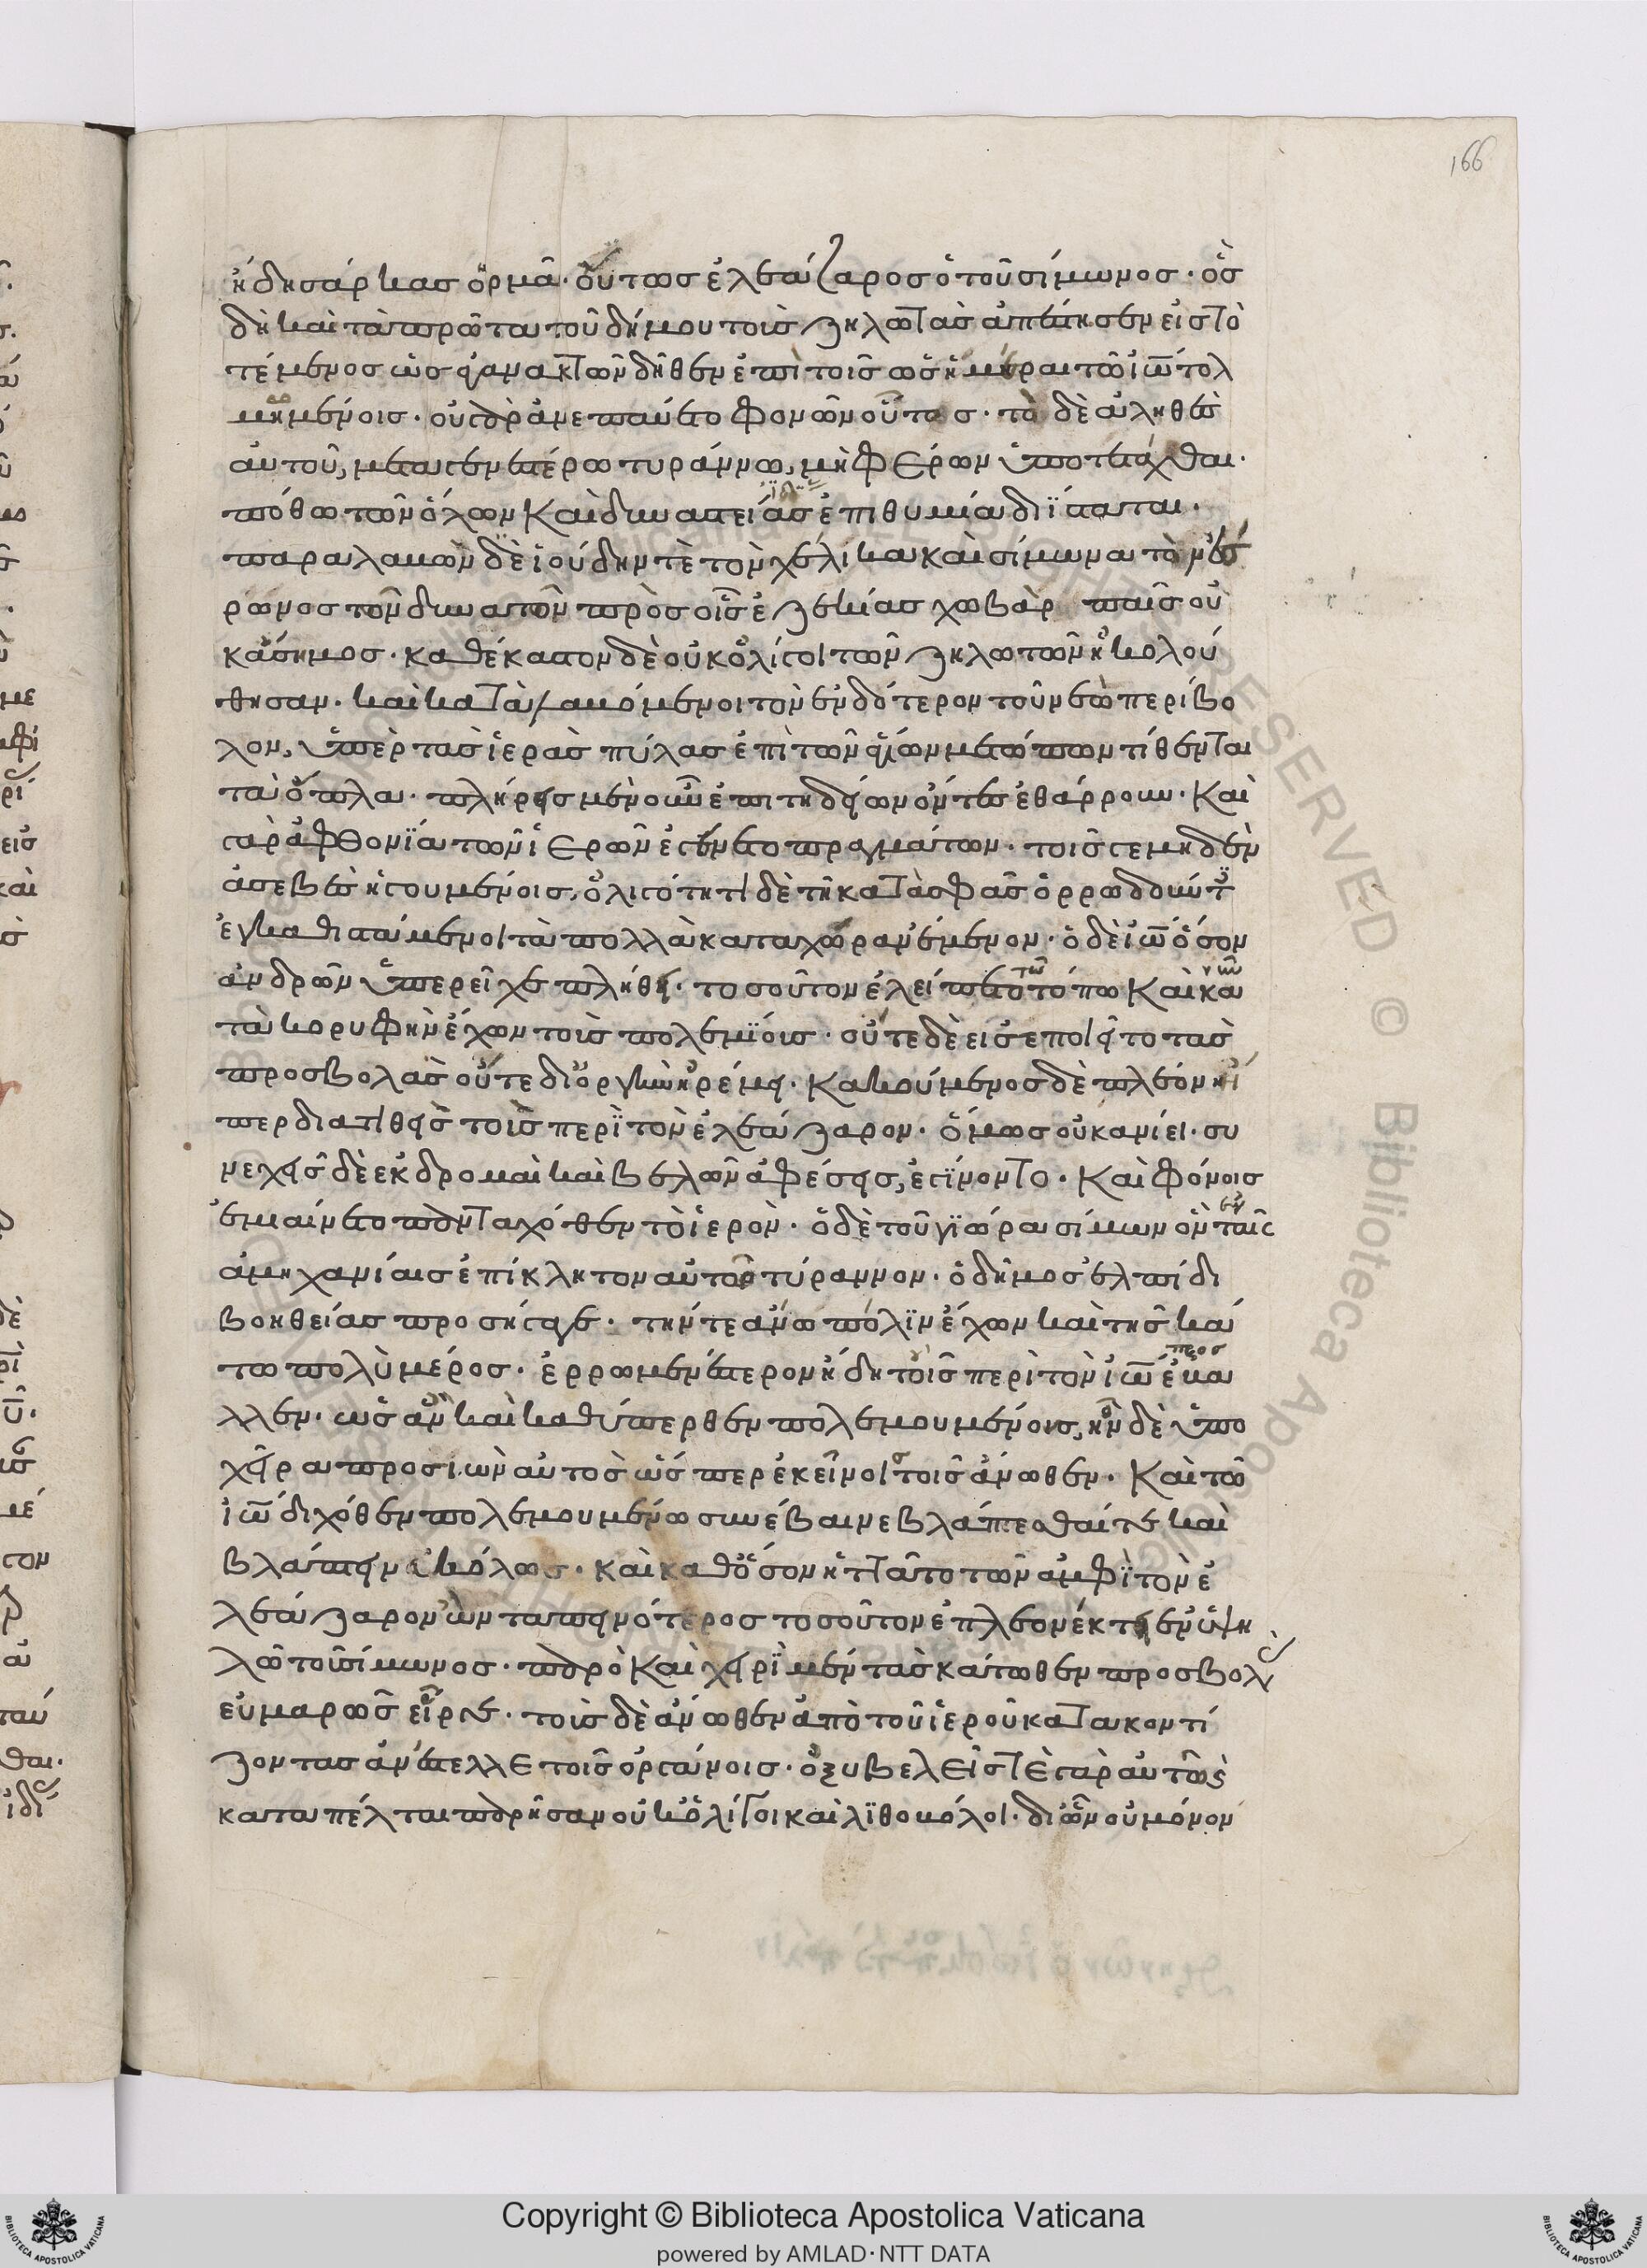 ἤδη σάρκας ὁρμᾶ· οὕτως ἐλεάζαρος ὁ τοῦ σίμωνος· ὃς
δὴ καὶ τὰ πρῶτα τοῦ δήμου τοὺς ζηλωτὰς ἀπέστησεν εἰς τὸ
τέμενος ὡς ἀγανακτῶν δῆθεν ἐπὶ τοῖς ὁσημέραι τῶ ἰω̅ τολ
μημένοις· οὐ γὰρ ἀνεπαύετο φονῶν οὗτος· τὸ δὲ ἀληθὲς
αὐτοῦ, μεταγενεστέρω τυράννω, μὴ φέρων ὑποτετάχθαι·
πόθω τῶν ὅλων καὶ δυναστείας ἐπιθυμία διΐσταται·
παραλαβὼν δὲ ἰούδην τὲ τὸν χελίκα καὶ σίμωνα τὸν ἐσ
ρωνος τῶν δυνατῶν πρὸς οἷς ἐζεκίας χωβὰρ παῖς οὐ
κάσημος· καθέκαστον δὲ οὐκ ὀλίγοι τῶν ζηλωτῶν ἠκολού
θησαν· καὶ καταλαβόμενοι τὸν ἐνδότερον τοῦ νεὼ περίβο
λον, ὑπὲρ τὰς ἱερὰς πύλας ἐπὶ τῶν ἁγίων μετώπων τίθενται
τὰ ὅπλα· πλήρεις μὲν οὖν ἐπιτηδείων ὄντες ἐθάρρουν· καὶ
γὰρ ἀφθονία τῶν ἱερῶν ἐγένετο πραγμάτων· τοῖς γε μηδὲν
ἀσεβὲς ἡγουμένοις, ὀλιγότητι δὲ τῆ κατὰ σφᾶς ὀρρωδοῦντ
ἐγκαθήμενοι τὰ πολλὰ κατὰ χώραν ἔμενον· ὁ δὲ ἰω̅ ὅσον
ἀνδρῶν ὑπερεῖχε πλήθει· τοσοῦτον ἐλείπετο τῶ τόπω καὶ κα
τὰ κορυφὴν ἔχων τοὺς πολεμίους· οὔτε δὲ εἰς ἐποιεῖτο τὰς
προσβολὰς οὔτε δι' ὀργὴν ἠρέμει· κακούμενος δὲ πλέον ἤ
περ διατιθεὶς τοὺς περὶ τὸν ἐλεάζαρον· ὅμως οὐκ ἀνίει· συ
νεχεῖς δὲ ἐκδρομαὶ καὶ βελῶν ἀφέσεις, ἐγίνοντο· καὶ φόνοις
ἐμιαίνετο πανταχόθεν τὸ ἱερόν· ὁ δὲ τοῦ γιώρα σίμων ὃν ἐν ταῖς
ἀμηχανίαις ἐπίκλητον αὐτῶ τύραννον· ὁ δῆμος ἐλπίδι
βοηθείας προσήγαγε· τήν τε ἄνω πόλιν ἔχων καὶ τῆς κά
τω πολὺ μέρος· ἐρρωμενέστερον ἤδη τοῖς περὶ τὸν ἰω̅ προσέβα
λλεν· ὡς ἂν καὶ καθύπερθεν πολεμουμένοις, ἦν δὲ ὑπο
χεῖρα προσιὼν αὐτὸς ὥσπερ ἐκεῖνοι τοῖς ἄνωθεν· καὶ τῶ
ἰω̅ διχόθεν πολεμουμένω συνέβαινε βλάπτεσθαί τε καὶ
βλάπτειν εὐκόλως· καὶ καθ' ὅσον ἡττᾶτο τῶν ἀμφὶ τὸν ἐ
λεάζαρον ὢν ταπεινότερος τοσοῦτον ἐπλεονέκτει ἐν ὑψη
λῶ τοῦ σίμωνος· παρὸ καὶ χειρὶ μὲν τὰς κάτωθεν προσβολὰς
εὐμαρῶς εἶργε· τοὺς δὲ ἄνωθεν ἀπὸ τοῦ ἱεροῦ κατακοντί
ζοντας ἀνέστελλε τοῖς ὀργάνοις· ὀξυβελεῖς τὲ γὰρ αὐτῶ ϗ
καταπέλται παρῆσαν οὐκ ὀλίγοι καὶ λιθοβόλοι· δι' ὧν οὐ μόνον
166
Copyright © Biblioteca Apostolica Vaticana
powered by AMLAD·NTT DATA